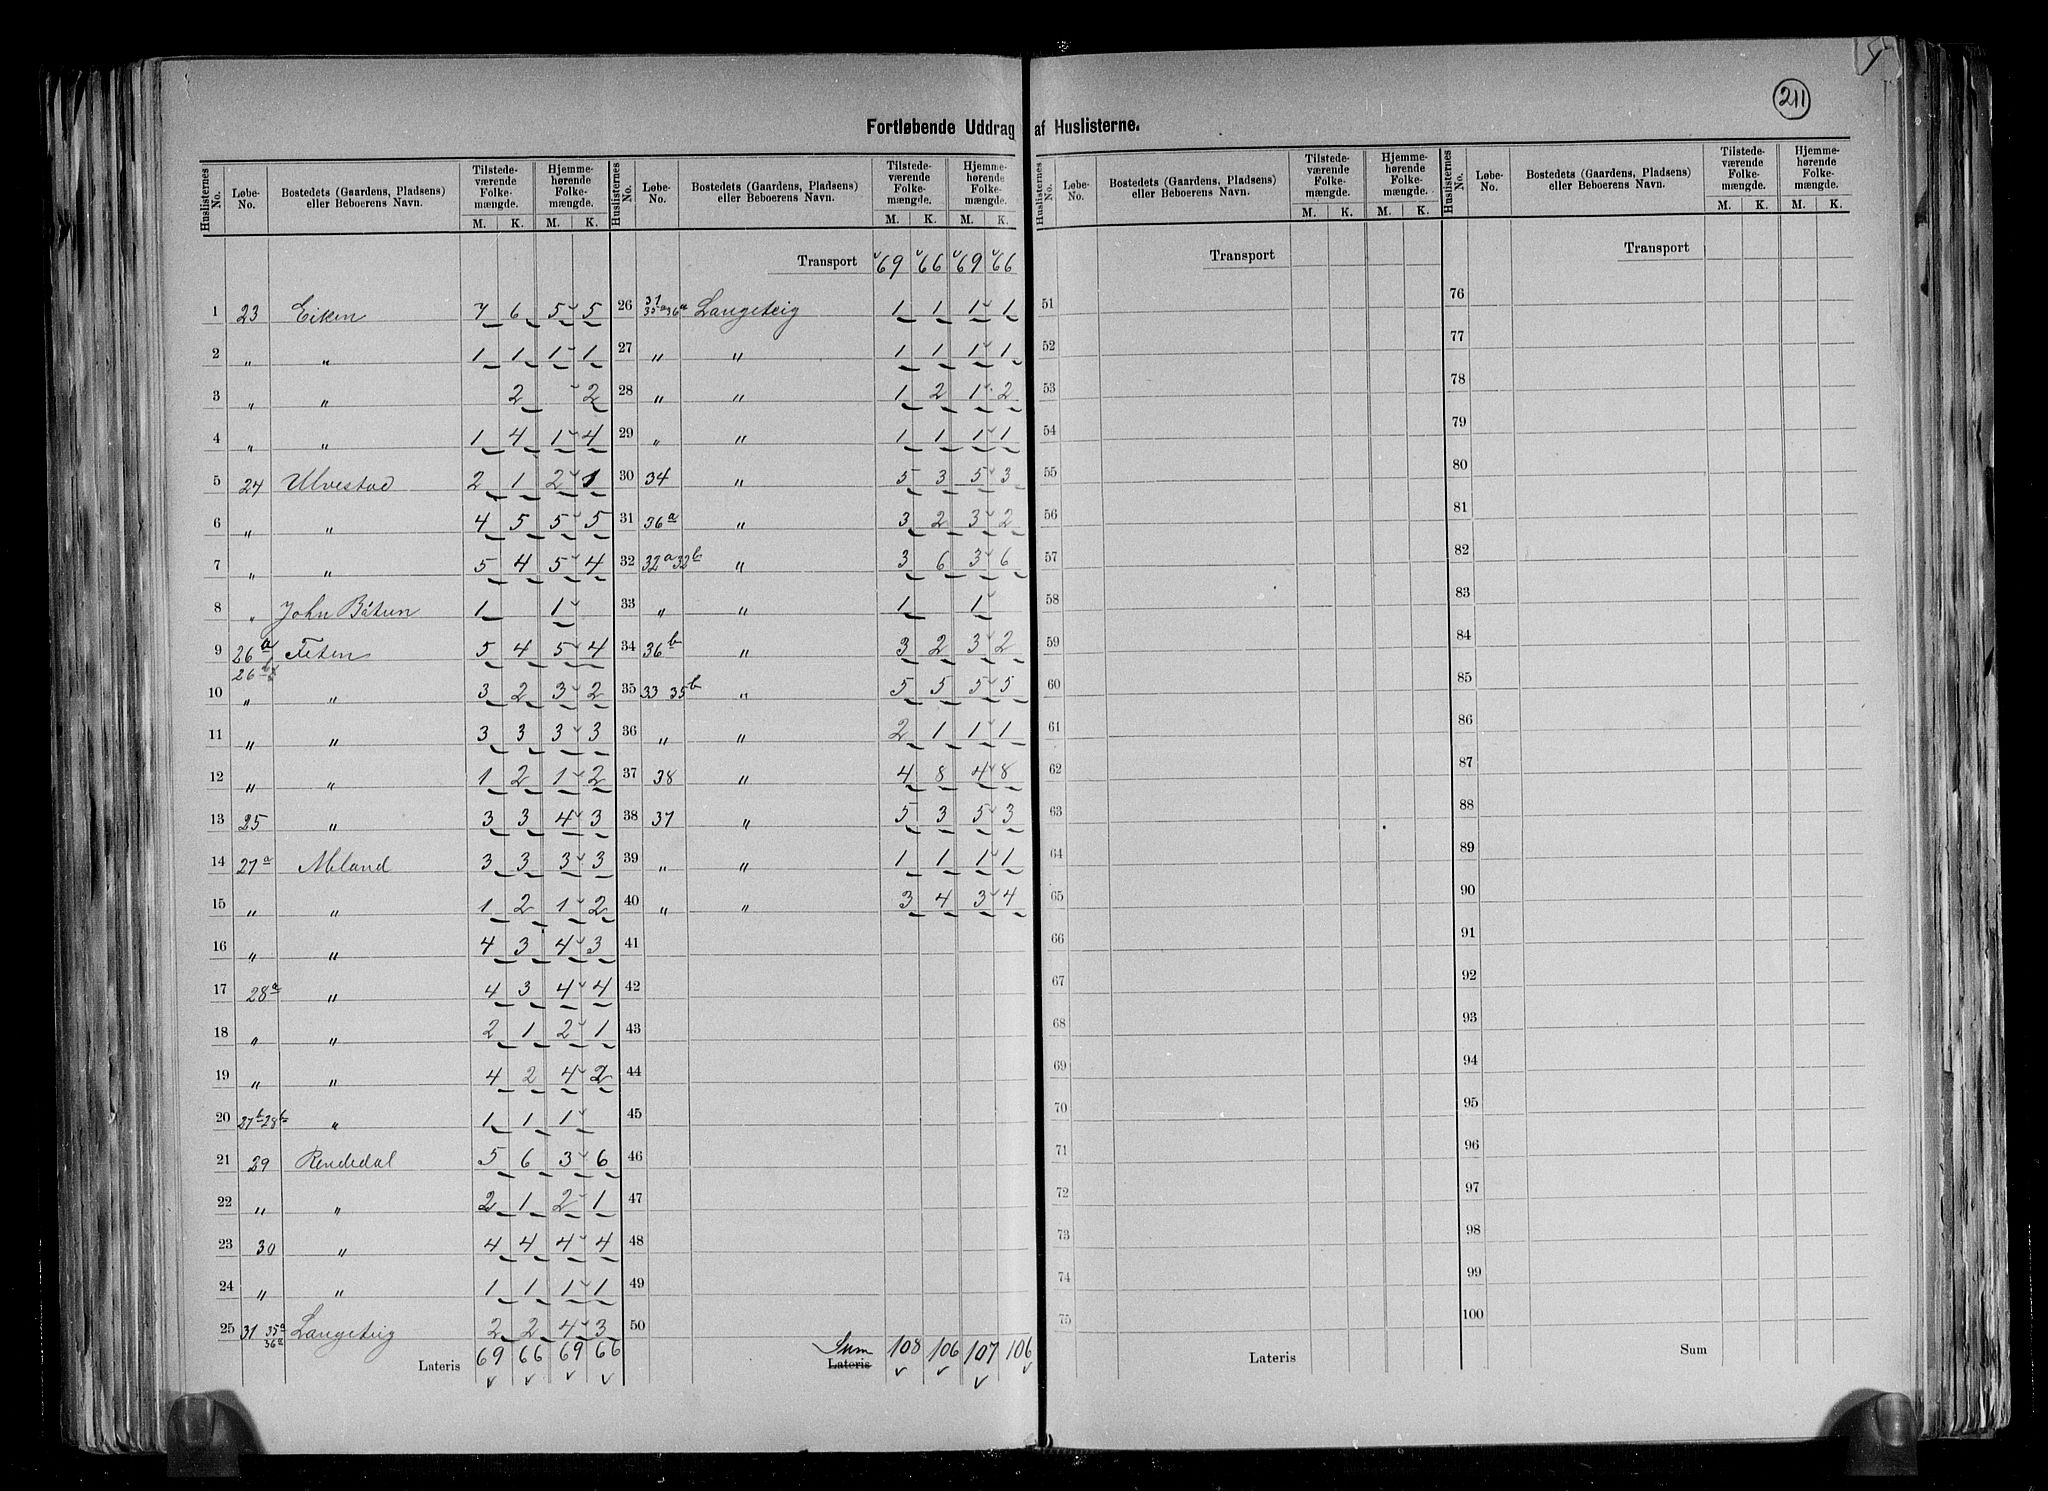 211
Fortløbende Uddrag af Huslisterne.
Huslisternes No. | Løbe-No. | Bostedets (Gaardens, Pladsens) eller Beboerens Navn. | Tilstedeværende Folkemængde. M. K. | Hjemmehørende Folkemængde. M. K.
1 23 Eiken 7 6 5 5
2 " " 1 1 1 1
3 " " 2 2
4 " " 1 4 1 4
5 24 Ulvestad 2 1 2 1
6 " " 4 5 5 5
7 " " 5 4 5 4
8 " John Båtun 1 1
9 26a 26b Feten 5 4 5 4
10 " " 3 2 3 2
11 " " 3 3 3 3
12 " " 1 2 1 2
13 25 " 3 3 4 3
14 27a Meland 3 3 3 3
15 " " 1 2 1 2
16 " " 4 3 4 3
17 28a " 4 3 4 4
18 " " 2 1 2 1
19 " " 4 2 4 2
20 27b 28b " 1 1 1
21 29 Rendedal 5 6 3 6
22 " " 2 1 2 1
23 30 " 4 4 4 4
24 " " 1 1 1 1
25 31 35a 36a Langeteig 2 2 4 3
Lateris 69 66 69 66
Huslisternes No. | Løbe-No. | Bostedets (Gaardens, Pladsens) eller Beboerens Navn. | Tilstedeværende Folkemængde. M. K. | Hjemmehørende Folkemængde. M. K.
Transport 69 66 69 66
26 31 35a 36a Langeteig 1 1 1 1
27 " " 1 1 1 1
28 " " 1 2 1 2
29 " " 1 1 1 1
30 34 " 5 3 5 3
31 36a " 3 2 3 2
32 32a 32b " 3 6 3 6
33 " " 1 1
34 36b " 3 2 3 2
35 33 35b " 5 5 5 5
36 " " 2 1 1 1
37 38 " 4 8 4 8
38 37 " 5 3 5 3
39 " " 1 1 1 1
40 " " 3 4 3 4
41
42
43
44
45
46
47
48
49
50
Sum Lateris 108 106 107 106
Huslisternes No. | Løbe-No. | Bostedets (Gaardens, Pladsens) eller Beboerens Navn. | Tilstedeværende Folkemængde. M. K. | Hjemmehørende Folkemængde. M. K.
Transport
51
52
53
54
55
56
57
58
59
60
61
62
63
64
65
66
67
68
69
70
71
72
73
74
75
Lateris
Huslisternes No. | Løbe-No. | Bostedets (Gaardens, Pladsens) eller Beboerens Navn. | Tilstedeværende Folkemængde. M. K. | Hjemmehørende Folkemængde. M. K.
Transport
76
77
78
79
80
81
82
83
84
85
86
87
88
89
90
91
92
93
94
95
96
97
98
99
100
Sum